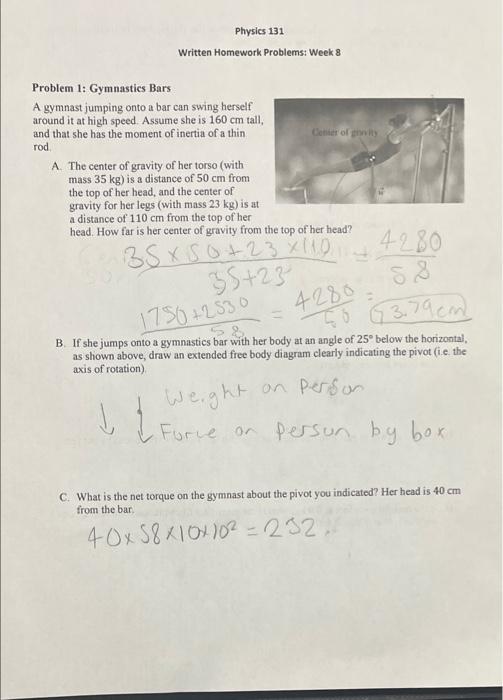 Physics 131
Written Homework Problems: Week 8
Problem 1: Gymnastics Bars
A gymnast jumping onto a bar can swing herself
around it at high speed. Assume she is 160 cm tall,
and that she has the moment of inertia of a thin
rod.
Center of gravity
A. The center of gravity of her torso (with
mass 35 kg) is a distance of 50 cm from
the top of her head, and the center of
gravity for her legs (with mass 23 kg) is at
a distance of 110 cm from the top of her
head. How far is her center of gravity from the top of her head?
35 x 50 + 23 x 110 = 4280
35+23 58
1750+2530 = 4280 = 73.79cm
58 58
B. If she jumps onto a gymnastics bar with her body at an angle of 25° below the horizontal,
as shown above, draw an extended free body diagram clearly indicating the pivot (i.e. the
axis of rotation).
↓ ↓ Weight on person
Force on person by box
C. What is the net torque on the gymnast about the pivot you indicated? Her head is 40 cm
from the bar.
40 x 58 x 10 x 10² = 232.